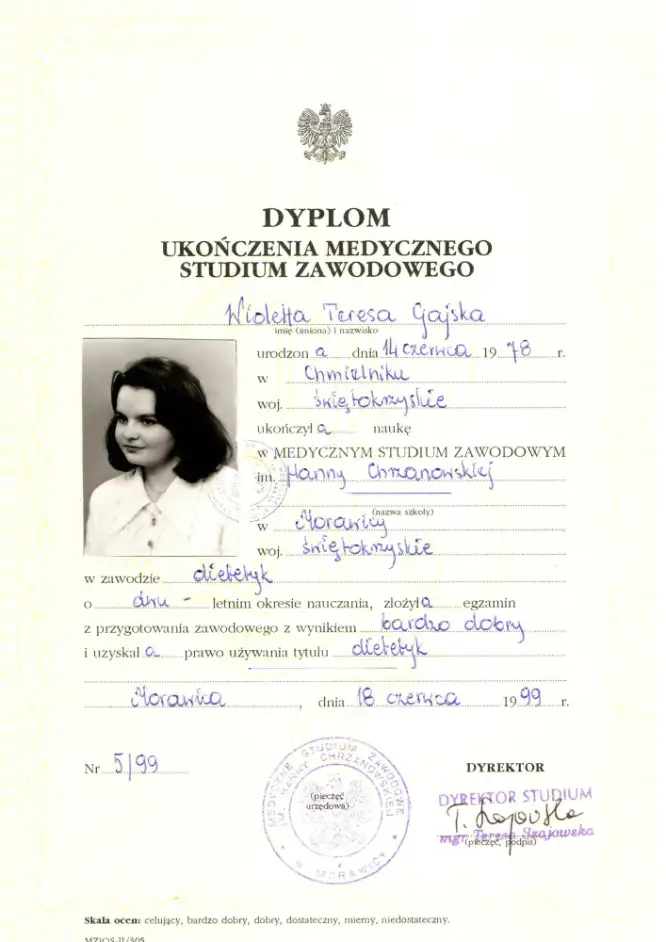 DYPLOM
UKOŃCZENIA MEDYCZNEGO
STUDIUM ZAWODOWEGO
Wioletta Teresa Gajska
imię (imiona) i nazwisko
urodzon a dnia 14 czerwca 19 78 r.
w Chmielniku
woj. świętokrzyskie
ukończył a naukę
w MEDYCZNYM STUDIUM ZAWODOWYM
im. Hanny Chrzanowskiej
(nazwa szkoły)
w Morawicy
woj. świętokrzyskie
w zawodzie dietetyk
o dwu - letnim okresie nauczania, złożył a egzamin
z przygotowania zawodowego z wynikiem bardzo dobry
i uzyskał a prawo używania tytułu dietetyk
Morawica, dnia 18 czerwca 19 99 r.
Nr 5/99
MEDYCZNE STUDIUM ZAWODOWE
IM. HANNY CHRZANOWSKIEJ
W MORAWICY
(pieczęć
urzędowa)
DYREKTOR
DYREKTOR STUDIUM
mgr Teresa Szajowska
(pieczęć, podpis)
Skala ocen: celujący, bardzo dobry, dobry, dostateczny, mierny, niedostateczny.
MZiOS-II/305